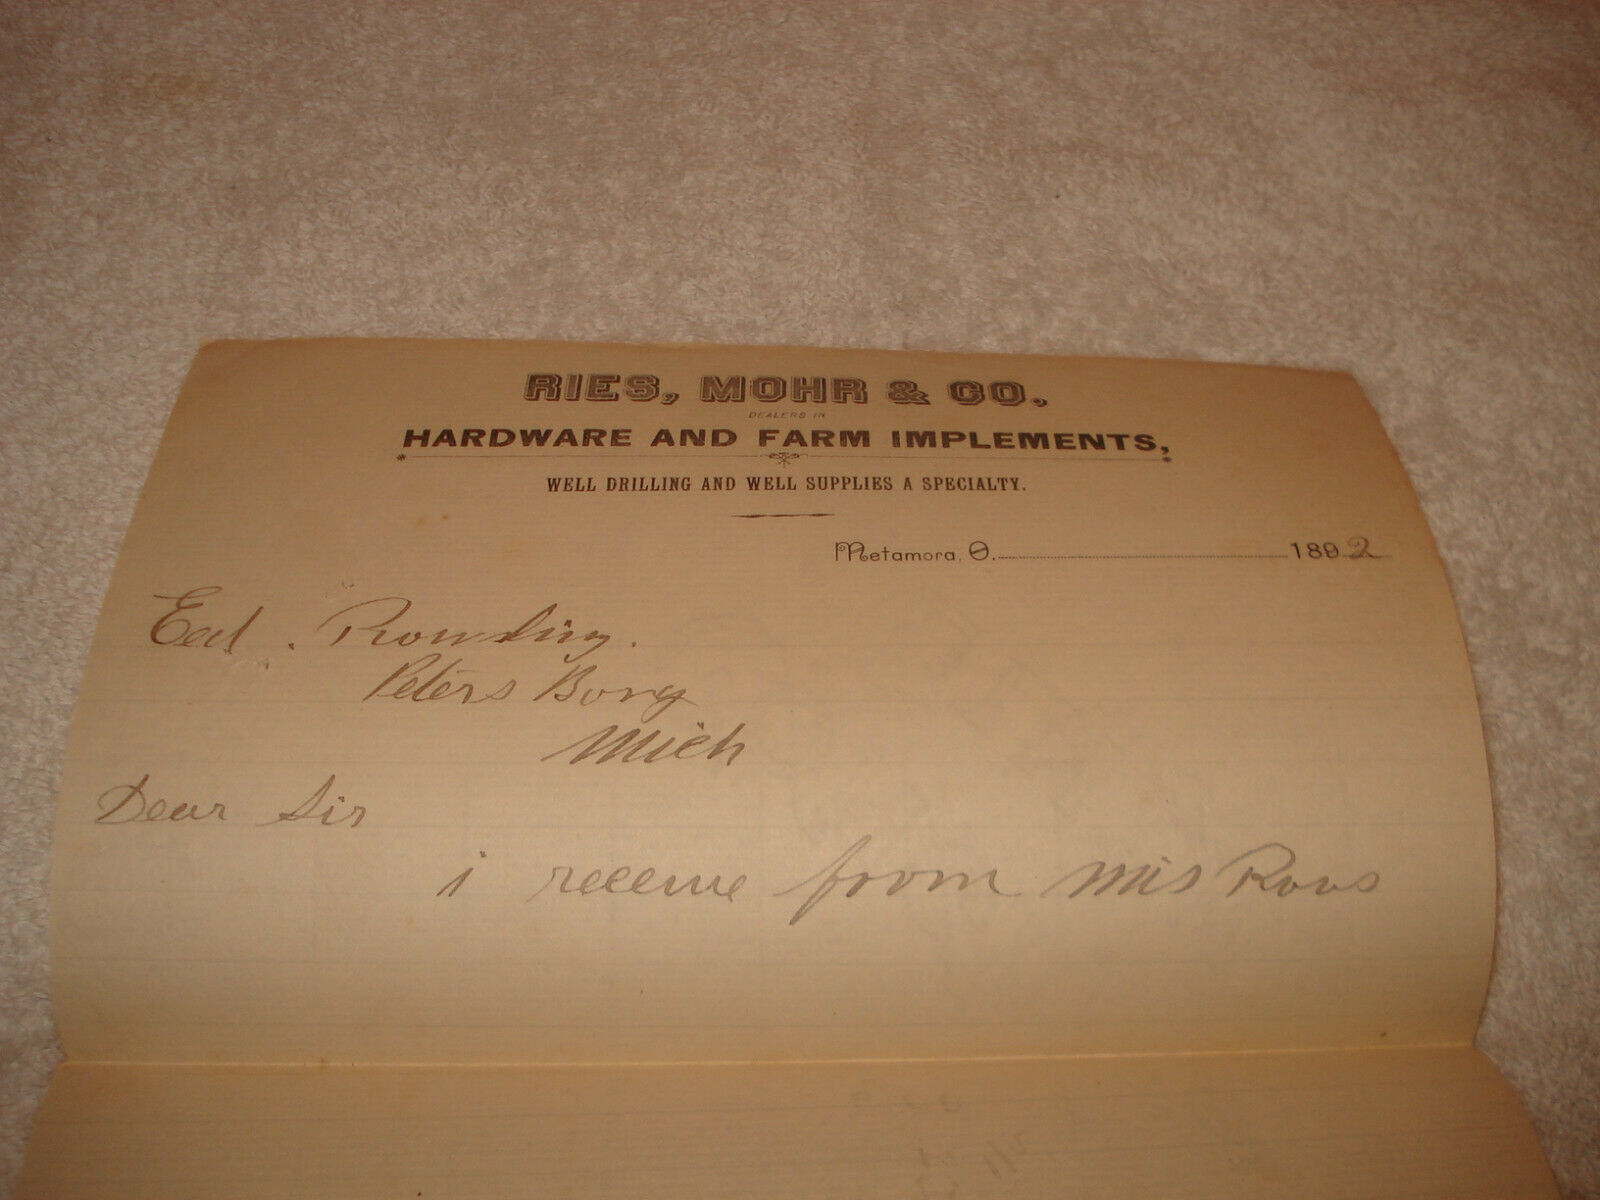 RIES, MOHR & CO.
DEALERS IN
HARDWARE AND FARM IMPLEMENTS,
WELL DRILLING AND WELL SUPPLIES A SPECIALTY.
Metamora, O. 1892
Ed.
Peters Borg
Mich
Dear Sir
i receive from Mis